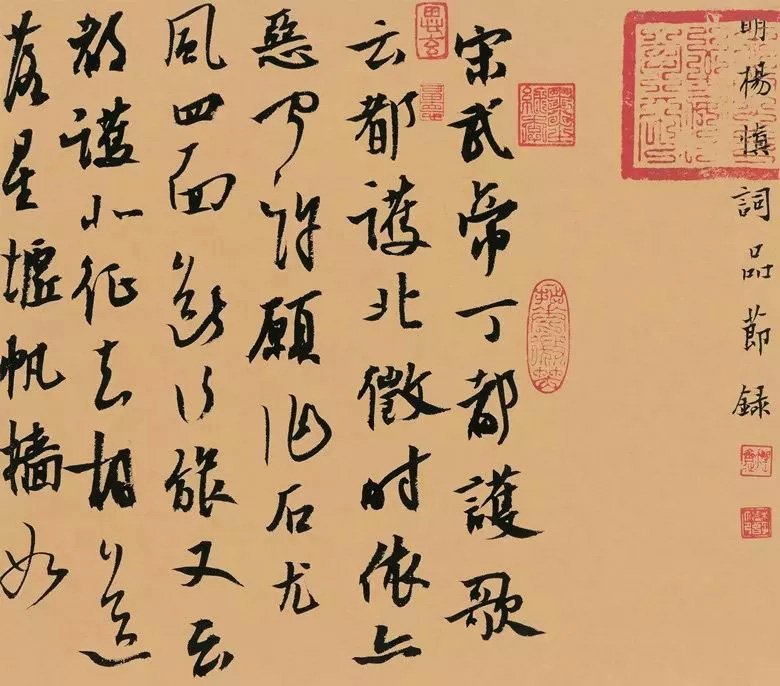 明楊慎詞品節錄
宋武帝丁都護歌
云都護北徵时儂亦
惡聞許願作石尤
風四面斷行旅又云
都護北征去相送
落星墟帆檣如